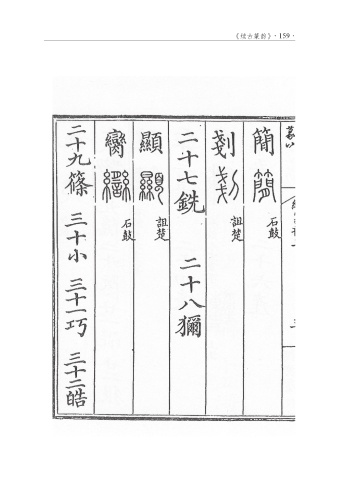 《续古篆韵》·159·
簡 石鼓
剗 詛楚
二十七銑 二十八獮
顯 詛楚
臠 石鼓
二十九篠 三十小 三十一巧 三十二皓